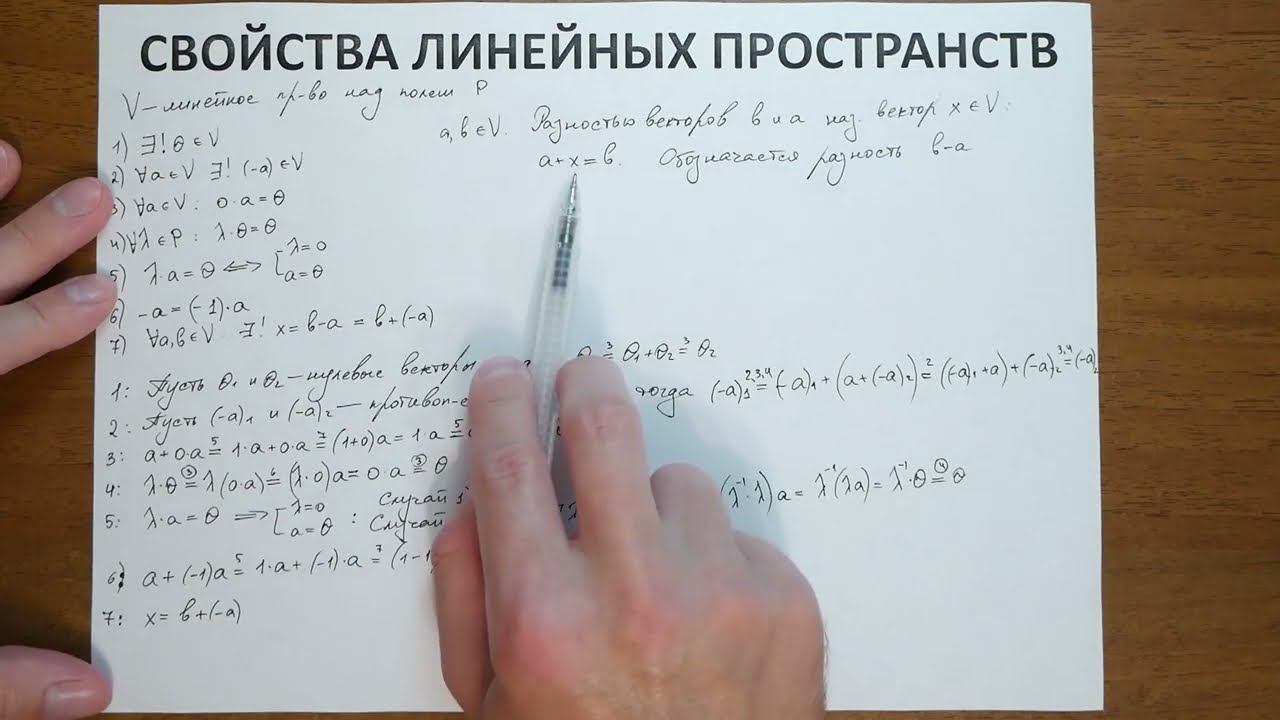 СВОЙСТВА ЛИНЕЙНЫХ ПРОСТРАНСТВ
V – линейное пр-во над полем P
a, b ∈ V. Разностью векторов b и a наз. вектор x ∈ V:
a + x = b. Обозначается разность b - a
1) ∃! θ ∈ V
2) ∀a ∈ V ∃! (-a) ∈ V
3) ∀a ∈ V: 0·a = θ
4) ∀λ ∈ P: λ·θ = θ
5) λ·a = θ ⟺ [ λ = 0
a = θ
6) -a = (-1)·a
7) ∀a, b ∈ V ∃! x = b - a = b + (-a)
1: Пусть θ₁ и θ₂ – нулевые векторы =³ θ₁ + θ₂ =³ θ₂
2: Пусть (-a)₁ и (-a)₂ — тогда (-a)₁ =²,³,⁴ (-a)₁ + (a + (-a)₂) =² ((-a)₁ + a) + (-a)₂ =³,⁴ (-a)₂
3: a + 0·a =⁵ 1·a + 0·a =⁷ (1+0)a = 1·a =⁵
4: λ·θ =③ λ(0·a) =⁶ (λ·0)a = 0·a =③ θ
5: λ·a = θ ⟹ [ λ = 0 Случай 1
a = θ : Случай (λ⁻¹·λ)a = λ⁻¹(λa) = λ⁻¹·θ =④ θ
6: a + (-1)a =⁵ 1·a + (-1)·a =⁷ (1-1
7: x = b + (-a)